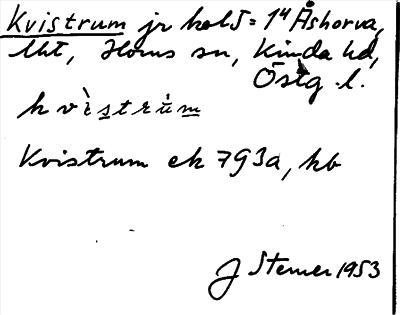 Kvistrum jr kol5 = 1⁴ Åshorva,
lht, Horns sn, Kinda hd,
Östg l.
kvìstrùm
Kvistrum ek 7G3a, hb
J Stemer 1953